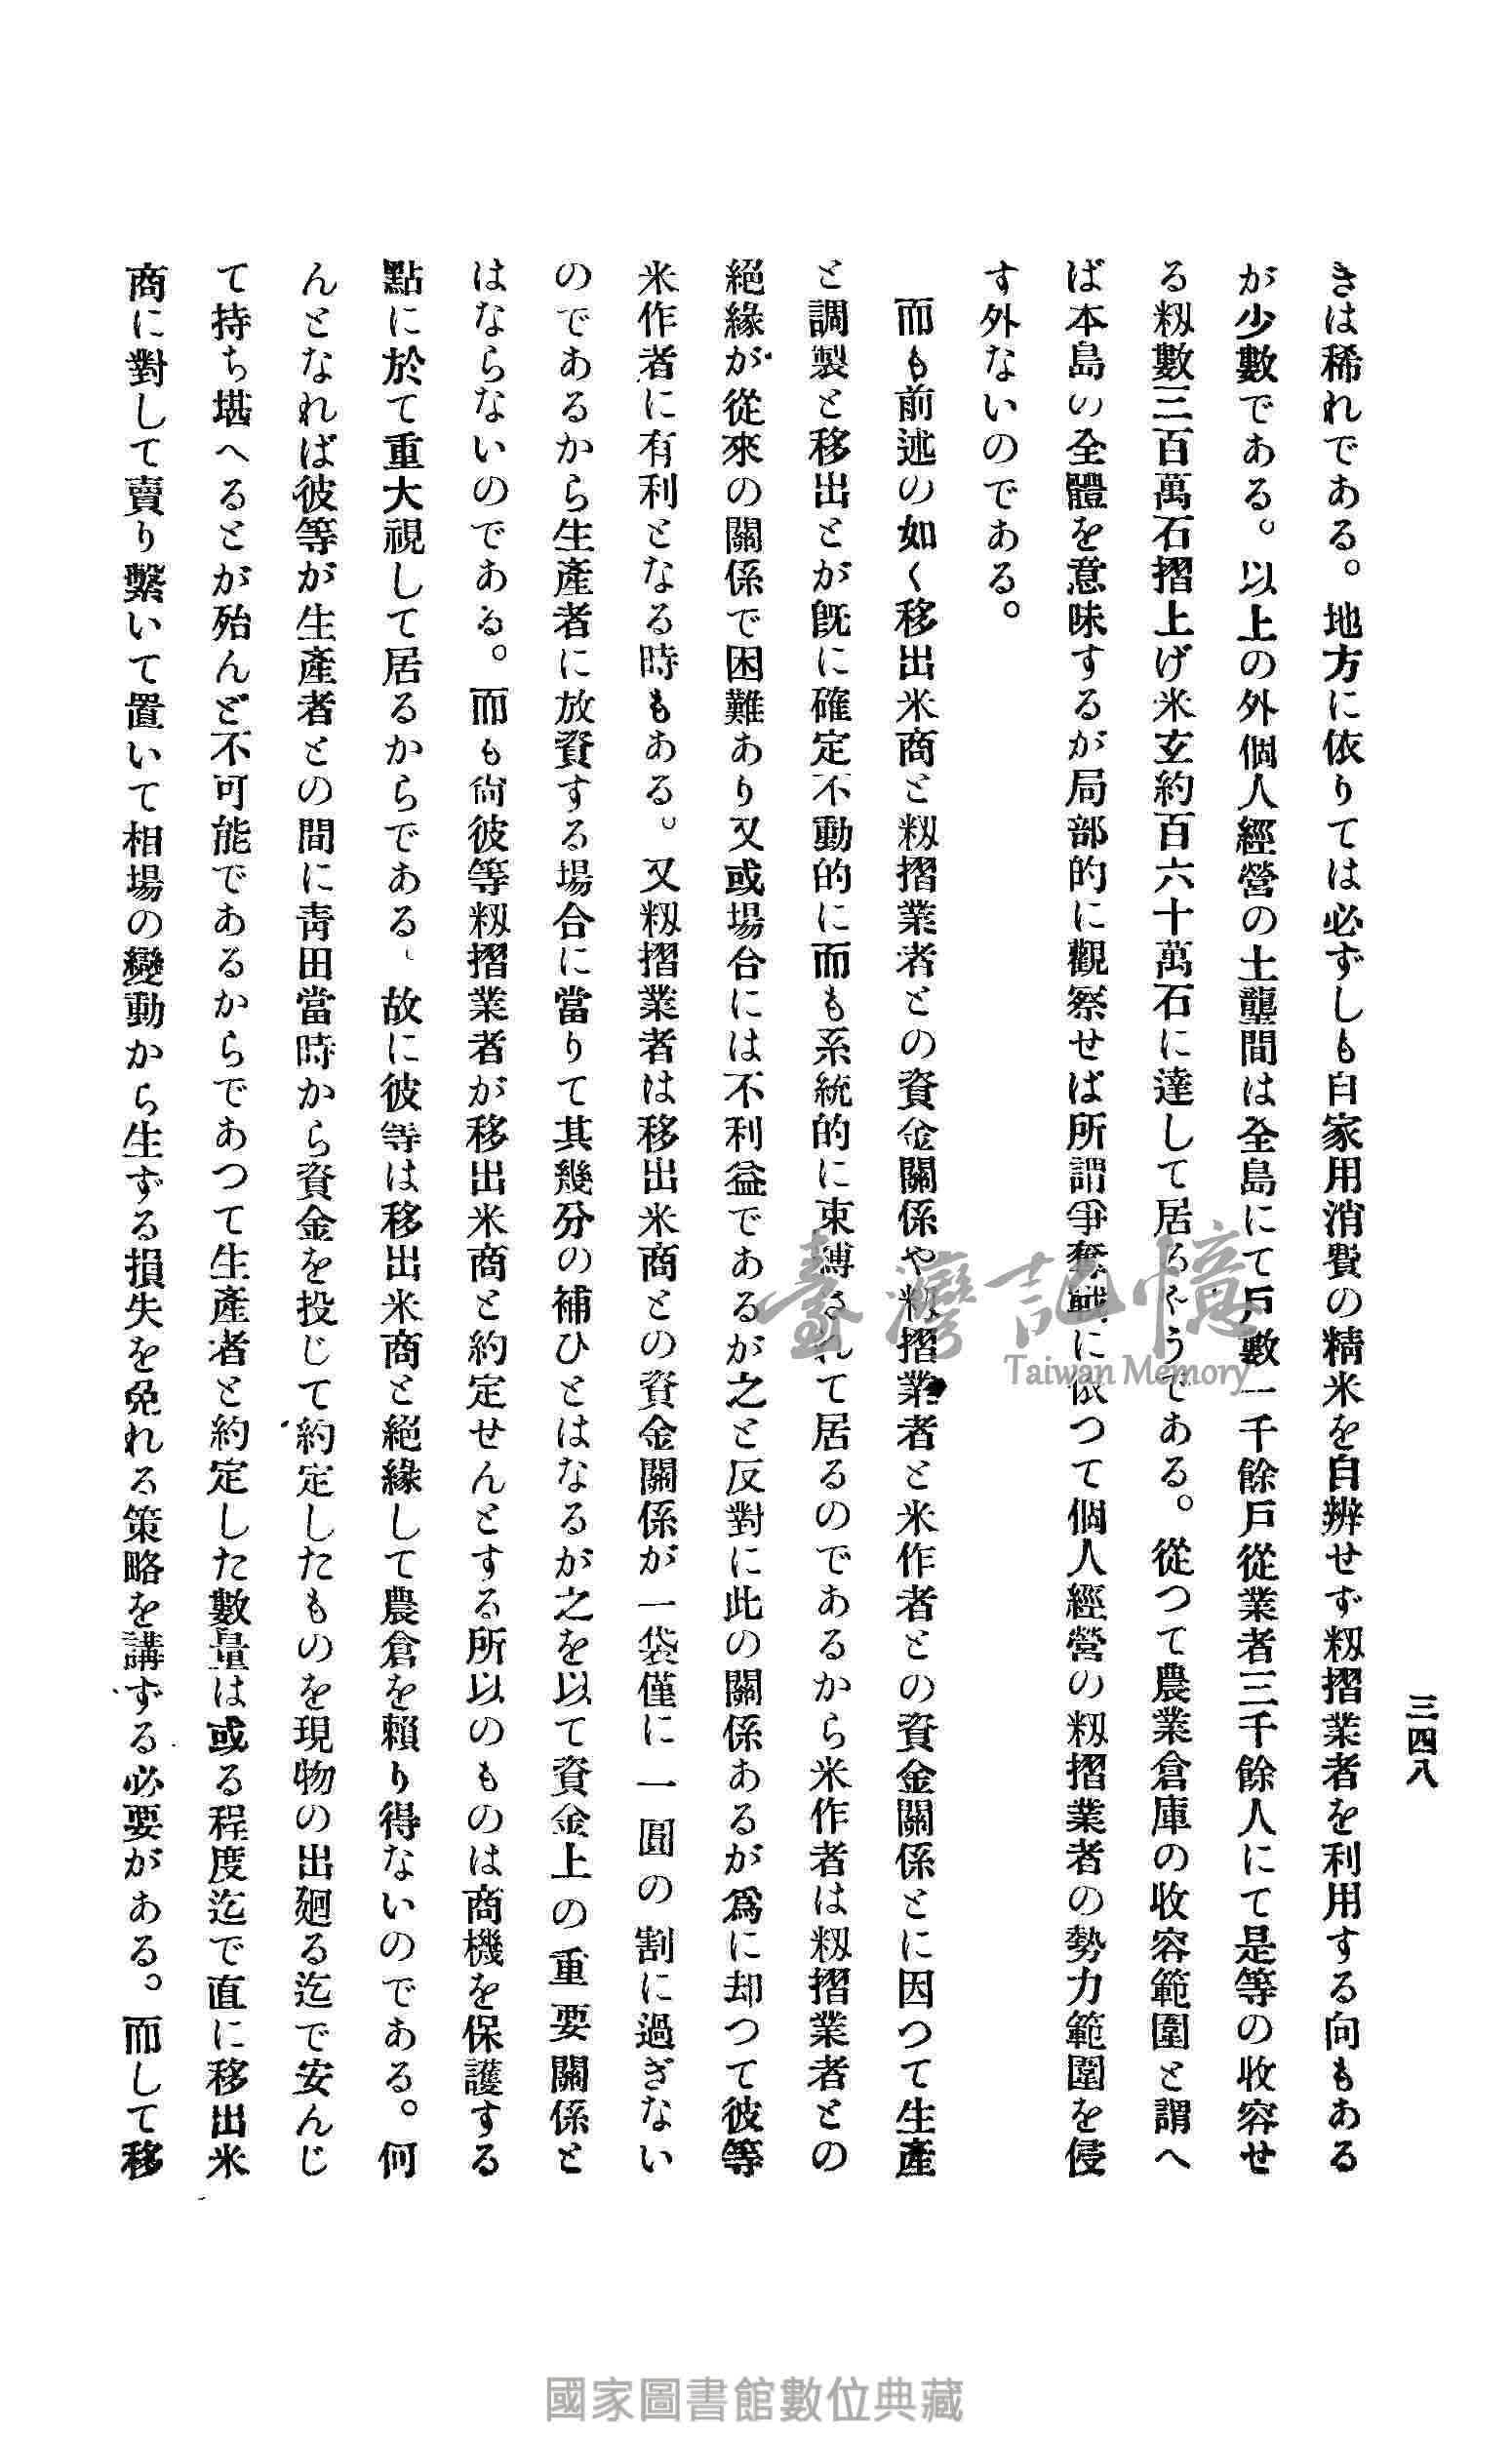 三四八
きは稀れである。地方に依りては必ずしも自家用消費の精米を自辨せず籾摺業者を利用する向もある
が少數である。以上の外個人經營の土壟間は全島にて戸數一千餘戸從業者三千餘人にて是等の收容せ
る籾數三百萬石摺上げ米玄約百六十萬石に達して居るやうである。從つて農業倉庫の收容範圍と謂へ
ば本島の全體を意味するが局部的に觀察せば所謂爭奪戰に依つて個人經營の籾摺業者の勢力範圍を侵
す外ないのである。
而も前述の如く移出米商と籾摺業者との資金關係や籾摺業者と米作者との資金關係とに因つて生產
と調製と移出とが既に確定不動的に而も系統的に束縛されて居るのであるから米作者は籾摺業者との
絕緣が從來の關係で困難あり又或場合には不利益であるが之と反對に此の關係あるが爲に却つて彼等
米作者に有利となる時もある。又籾摺業者は移出米商との資金關係が一袋僅に一圓の割に過ぎない
のであるから生產者に放資する場合に當りて其幾分の補ひとはなるが之を以て資金上の重要關係と
はならないのである。而も尙彼等籾摺業者が移出米商と約定せんとする所以のものは商機を保護する
點に於て重大視して居るからである、故に彼等は移出米商と絕緣して農倉を賴り得ないのである。何
んとなれば彼等が生產者との間に靑田當時から資金を投じて約定したものを現物の出廻る迄で安んじ
て持ち堪へるとが殆んど不可能であるからであつて生產者と約定した數量は或る程度迄で直に移出米
商に對して賣り繫いて置いて相場の變動から生ずる損失を免れる策略を講ずる必要がある。而して移
臺灣記憶
Taiwan Memory
國家圖書館數位典藏